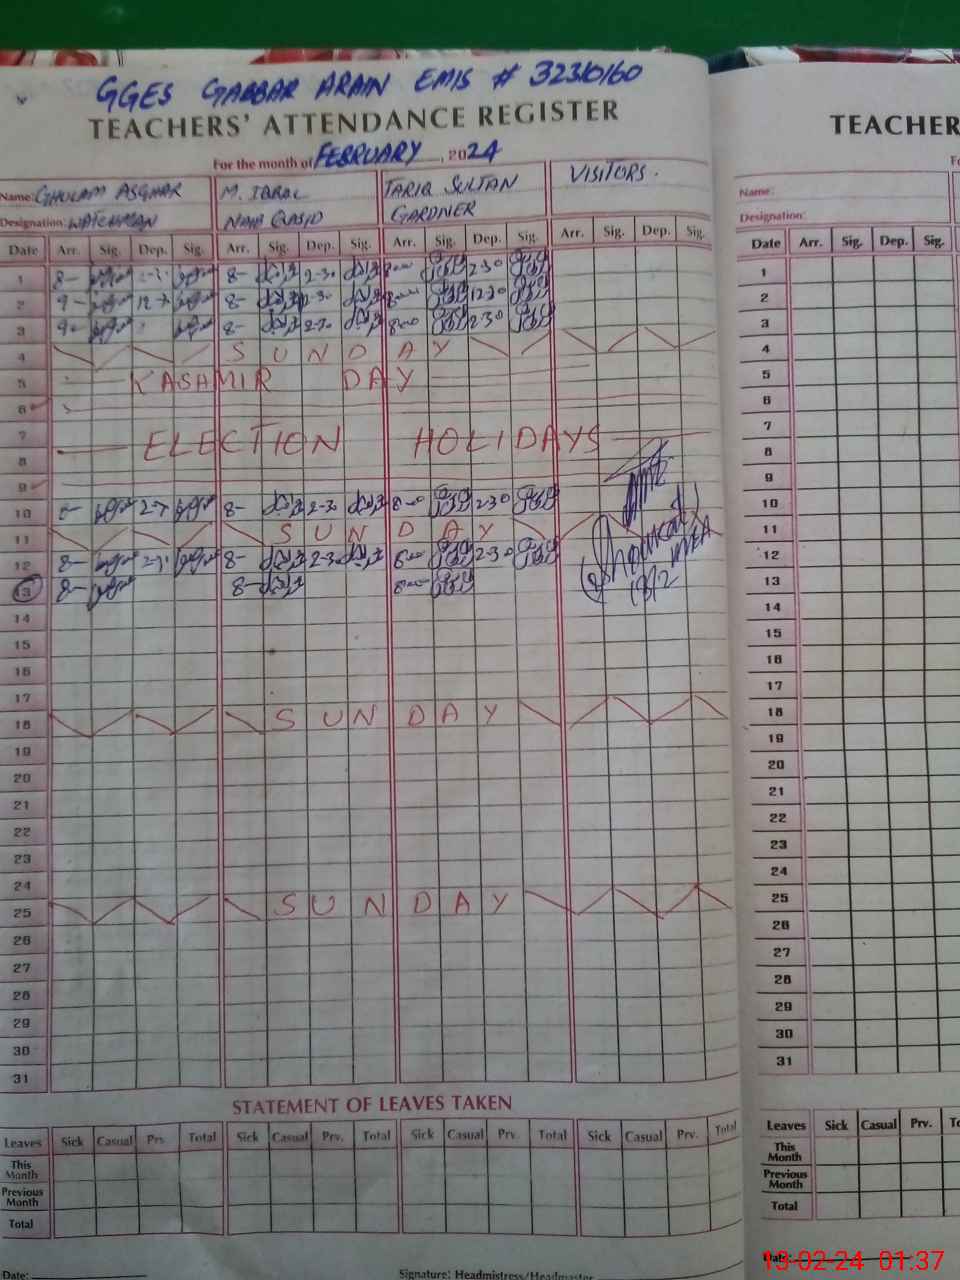 GGES GABBAR ARAIN EMIS # 32310160
TEACHERS' ATTENDANCE REGISTER
For the month of FEBRUARY, 2024
Name: GHULAM ASGHAR M. IQBAL TARIQ SULTAN VISITORS.
Designation: WATCHMAN NAIB QASID GARDNER
Date Arr. Sig. Dep. Sig. Arr. Sig. Dep. Sig. Arr. Sig. Dep. Sig. Arr. Sig. Dep. Sig.
1 8- 8- 2-30 8-00 2-30
2 9- 8- 12-30
3 8- 8-00 2-30
4 SUNDAY
5 KASHMIR DAY
6
7 ELECTION HOLIDAYS
8
9
10 8- 2-30 8-00 2-30
11 SUNDAY
12 8- 8- 2-30 8-00 2-30
13 8- 8- 8-00
14
15
16
17
18 SUNDAY
19
20
21
22
23
24
25 SUNDAY
26
27
28
29
30
31
STATEMENT OF LEAVES TAKEN
Leaves Sick Casual Prv. Total Sick Casual Prv. Total Sick Casual Prv. Total Sick Casual Prv. Total
This Month
Previous Month
Total
Date: Signature: Headmistress/Headmaster
TEACHER
Name:
Designation:
Date Arr. Sig. Dep.
1
2
3
4
5
6
7
8
9
10
11
12
13
14
15
16
17
18
19
20
21
22
23
24
25
26
27
28
29
30
31
Leaves Sick Casual Prv.
This Month
Previous Month
Total
Date:
13-02-24 01:37